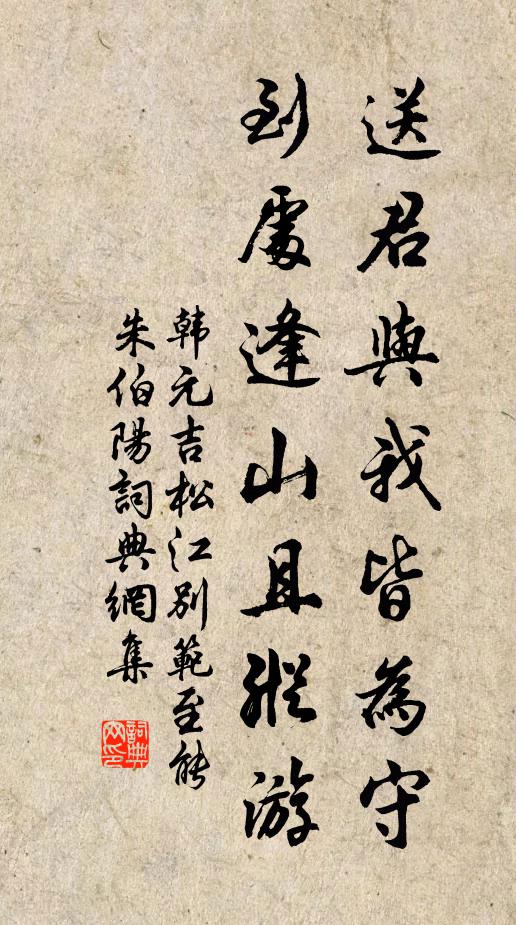 送君與我皆為守
到處逢山且縱游
韩元吉松江別範至能
朱伯陽詞典網集
詞典網印